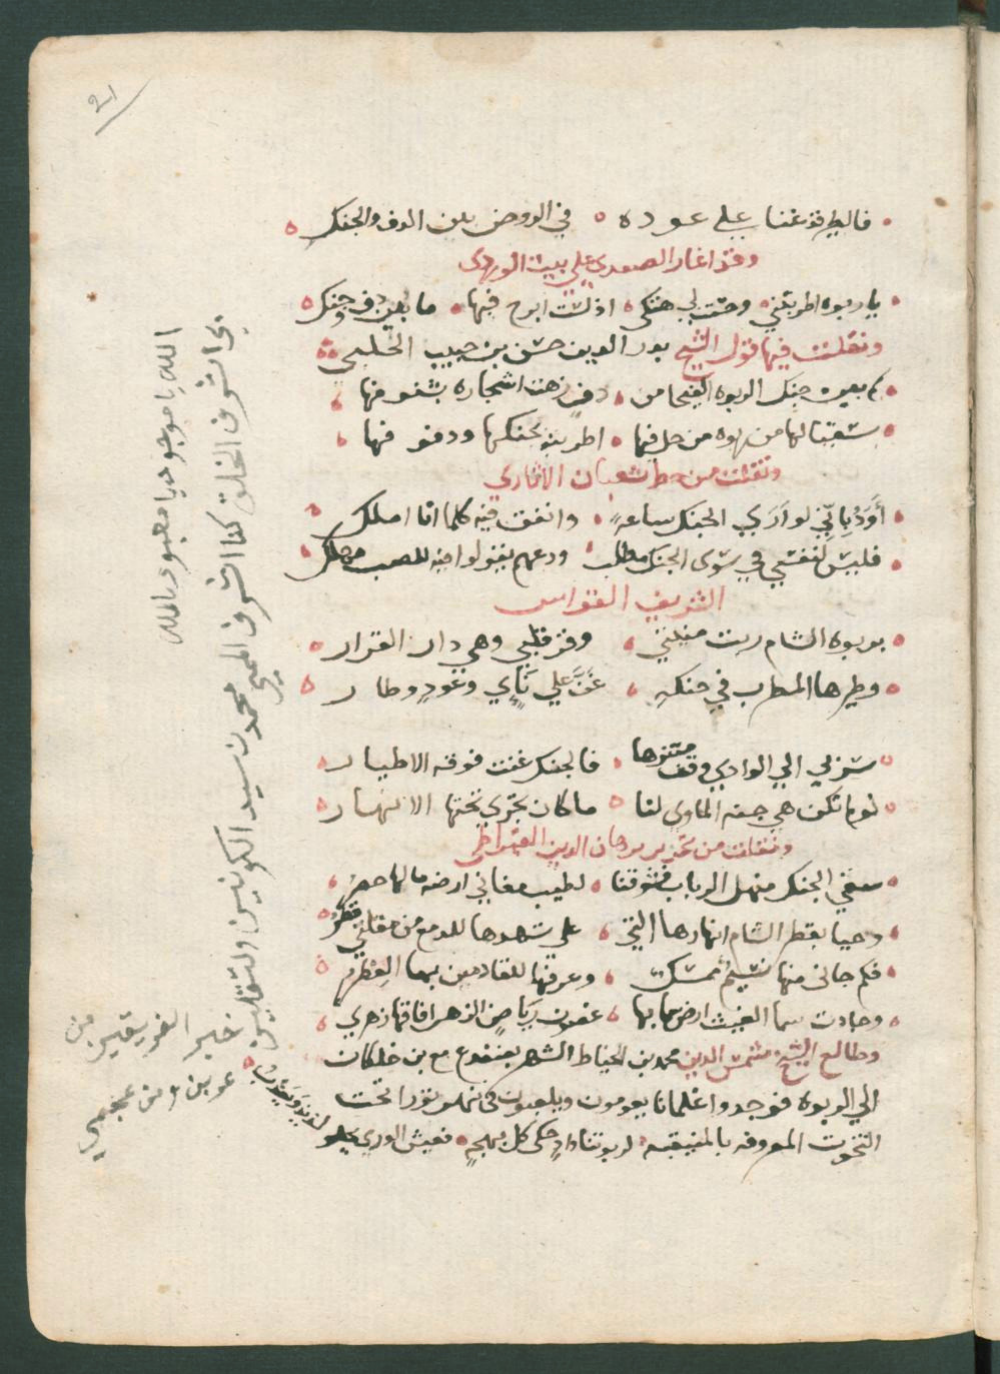 21
فالطير قد غنا علي عوده ه في الروض بين الدف والجنك ه
وقد اغار الصفدي علي بيت الوردي
ياربوه اطربتني وحسّنت لي هتكي اذ لست ابرح فيها ما بين دف وجنك ه
ونقلت فيها قول الشيخ بدر الدين حسن بن حبيب الحلبي
بعين جنك الربوه الفيحا من دف زهت اشجاره بشنوفها
سقيا لها من ربوه من حل فيها اطربته بجنكها ودفوفها
ونقلت من خط شعبان الاثاري
أَوَدُّ بِأَنّي لو اَرَي الجنك ساعةً وانفق فيه كلما انا املك
فليس لنفسي في سوى الجنك مطلب ودعهم يقولوا فيه للصب مهلك
الشريف القواس
بربوه الشام ربت منيتي وقر قلبي وهي دار القرار
وطيرها المطرب في جنكهِ غَنَّ علي نَاٍي وعودٍ وطار
سر بي الي الوادي وقف متنزها فالجنك غنت فوقه الاطيار
لولم تكن هي جنه الماوى لنا ما كان يجري تحتها الانهار
ونقلت من تحرير برهان الدين القيراطي
سقي الجنك منهل الرباب فشوقنا لطيب مغاني ارضه مالها حصرُ
وحيا بقطر الشام انهارها التي علي شهدها للدمع من مقلتي قطرُ
فكم جاني منها نسيمٌ ممسك وعرفها للقادمين بها العطرُ
وجادت سما الغيث ارض سما بها غصون رياض الزهر افاقها زهري
وطالع الشيخ شمس الدين محمد بن الخياط الشهير بضفدع مع بن خلكان
الي الربوه فوجدوا غلمانا يعومون ويلعبون في نهر نورا تحت
التخوت المعروفه بالمنيقبه لربوتنا وادٍ حكى كل بهجةٍ فعيش الورى يحلو لديه ويعذب
الله يا موجود يا معبود يا الله
بجا اشرف الخلق كنا اشرف المحبي محمد سيد الكونين والثقلين
خير الفريقين من
عرب ومن عجمي